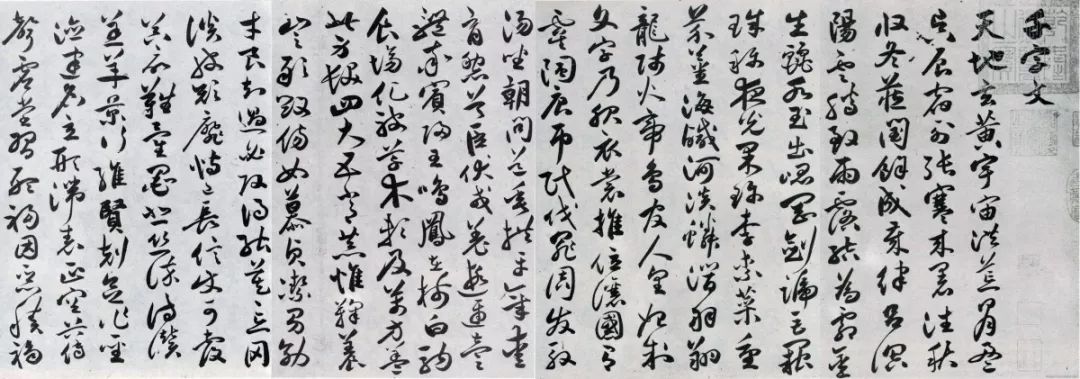 千字文
天地玄黃宇宙洪荒日月盈
昃辰宿列張寒來暑往秋
收冬藏閏餘成歲律呂調
陽雲騰致雨露結為霜金
生麗水玉出崑岡劍號巨闕
珠稱夜光果珍李柰菜重
芥薑海鹹河淡鱗潛羽翔
龍師火帝鳥官人皇始制
文字乃服衣裳推位讓國有
虞陶唐弔民伐罪周發殷
湯坐朝問道垂拱平章愛
育黎首臣伏戎羌遐邇壹
體率賓歸王鳴鳳在樹白駒
食場化被草木賴及萬方蓋
此身髮四大五常恭惟鞠養
豈敢毀傷女慕貞潔男効
才良知過必改得能莫忘罔
談彼短靡恃己長信使可覆
器欲難量墨悲絲染詩讚
羔羊景行維賢剋念作聖
德建名立形端表正空谷傳
聲虛堂習聽禍因惡積福